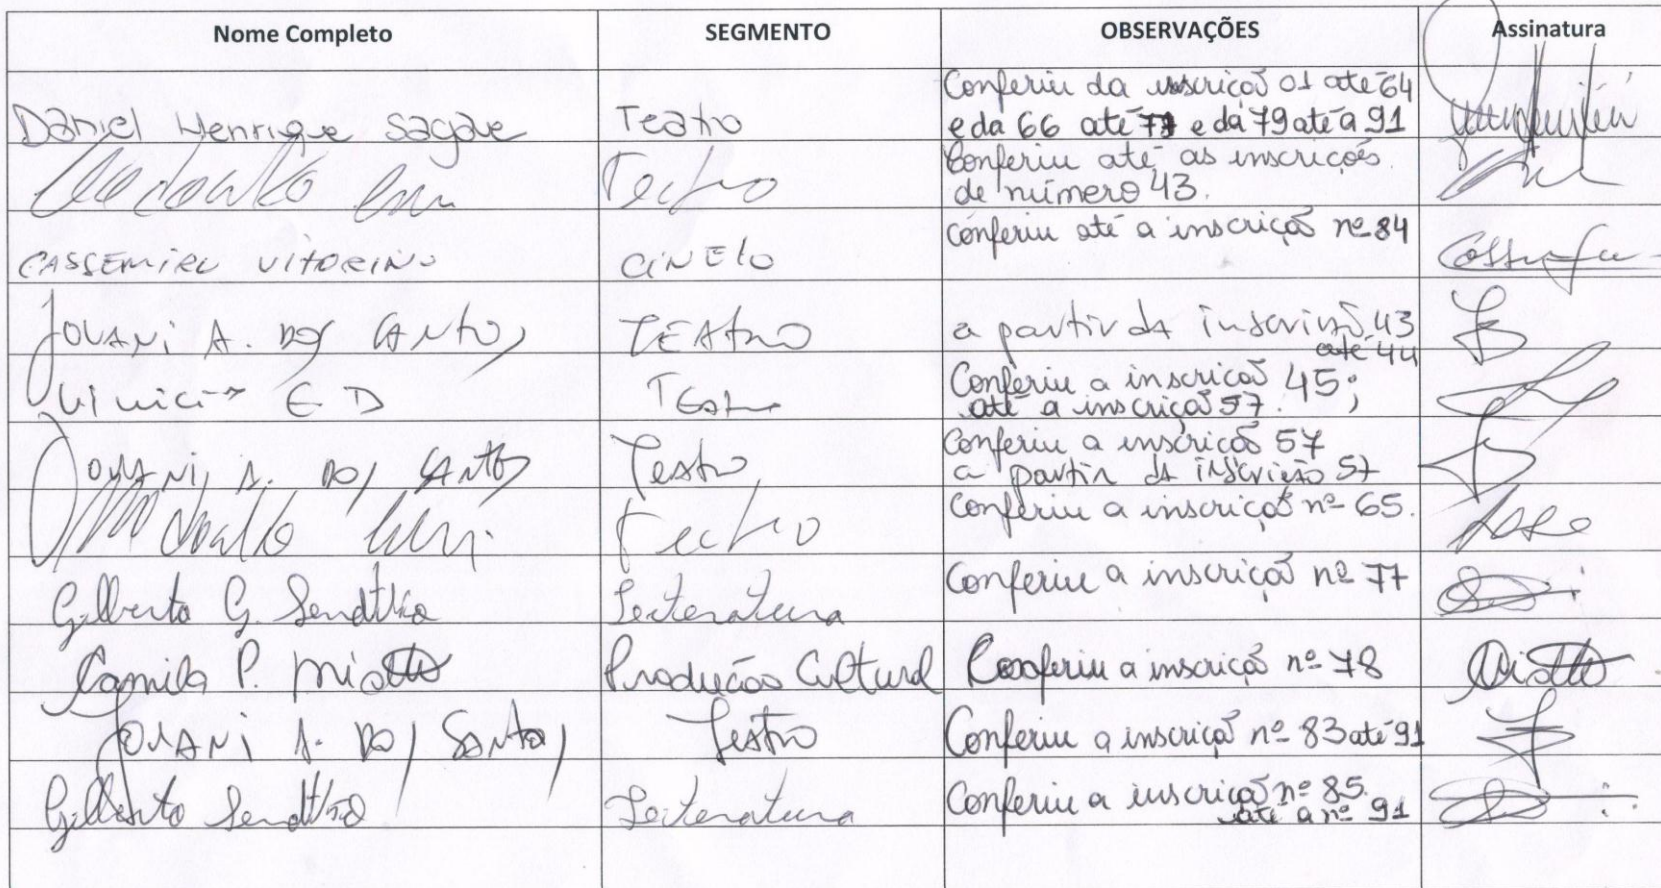 Nome Completo SEGMENTO OBSERVAÇÕES Assinatura
Daniel Henrique Sagave Teatro Conferiu da inscrição 01 até 64
e da 66 até e da 79 até a 91
Teatro Conferiu até as inscrições
de número 43.
CASSEMIRO VITORINO Conferiu até a inscrição nº 84
JOVANI A. DOS SANTOS TEATRO a partir da inscrição 43
até 44
Vinicius E D Teatro Conferiu a inscrição 45;
até a inscrição 57.
JOVANI A. DOS SANTOS Teatro Conferiu a inscrição 57
a partir da inscrição 57
Teatro Conferiu a inscrição nº 65.
Gilberto G. Sendtko Leiteratura Conferiu a inscrição nº 77
Camila P. Miotto Produção Cultural Conferiu a inscrição nº 78 Miotto
JOVANI A. DOS Santos Teatro Conferiu a inscrição nº 83 até 91
Gilberto Sendtko Leiteratura Conferiu a inscrição nº 85.
até a nº 91